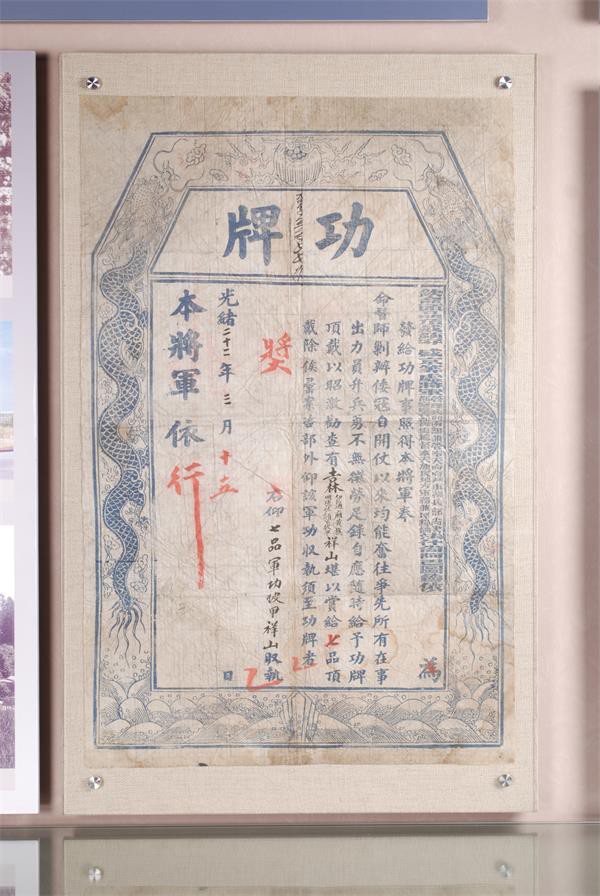 功牌
為
發給功牌事照得本將軍奉
命督師剿辦倭寇自開仗以來均能奮往爭先所有在事
出力員弁兵勇不無微勞足錄自應隨時給予功牌
頂戴以昭激勸查有吉林祥山堪以賞給七品頂
戴除俟彙案咨部外仰該軍功收執須至功牌者
右仰七品軍功披甲祥山收執
獎
光緒二十二年三月十五日
本將軍依行